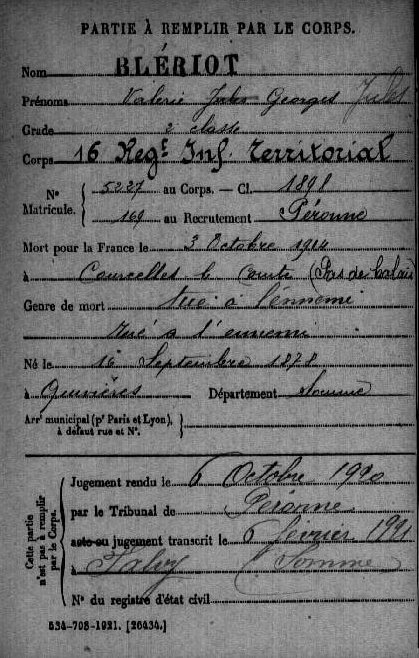 PARTIE À REMPLIR PAR LE CORPS.
Nom BLÉRIOT
Prénoms Valerie Jules Georges Jules
Grade 2e classe
Corps 16 Regt Inf. Territorial
N° Matricule. { 5227 au Corps. — Cl. 1898
169 au Recrutement Péronne
Mort pour la France le 3 Octobre 1914
à Courcelles le Comte (Pas de Calais)
Genre de mort Tué à l'ennemi
Tué a l'ennemi
Né le 16 Septembre 1878
à Département Somme
Arrt municipal (pr Paris et Lyon), à défaut rue et N°. }
Cette partie n'est pas à remplir par le Corps. {
Jugement rendu le 6 Octobre 1920
par le Tribunal de Péronne
acte ou jugement transcrit le 6 février 1921
à Falvy (Somme)
N° du registre d'état civil
534-708-1921. [26434.]